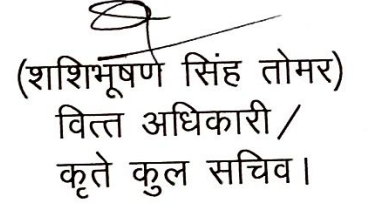 (शशिभूषण सिंह तोमर)
वित्त अधिकारी/
कृते कुल सचिव।